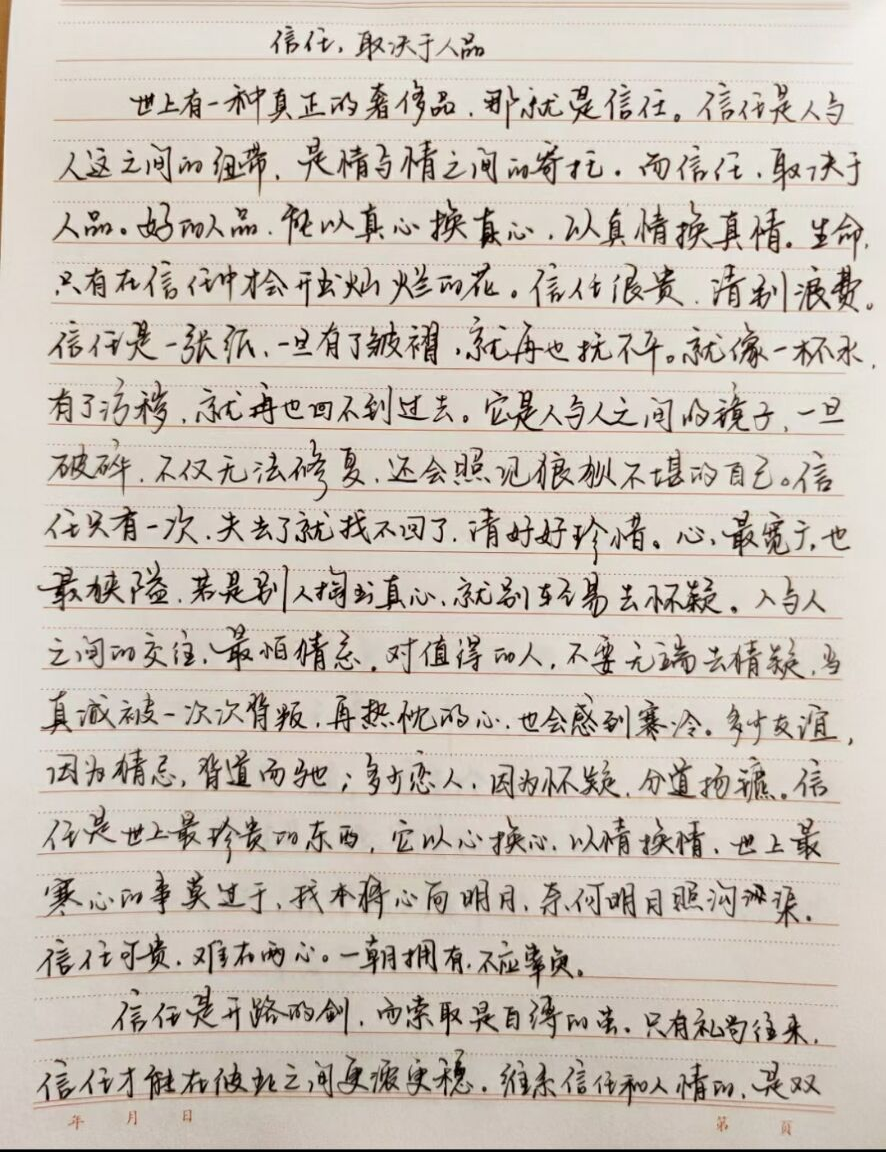 信任,取决于人品
世上有一种真正的奢侈品,那就是信任。信任是人与
人这之间的纽带,是情与情之间的寄托。而信任,取决于
人品。好的人品,能以真心换真心,以真情换真情。生命,
只有在信任中才会开出灿烂的花。信任很贵,请别浪费。
信任是一张纸,一旦有了皱褶,就再也抚不平。就像一杯水,
有了污秽,就再也回不到过去。它是人与人之间的镜子,一旦
破碎,不仅无法修复,还会照见狼狈不堪的自己。信
任只有一次,失去了就找不回了,请好好珍惜。心,最宽广,也
最狭隘,若是别人掏出真心,就别轻易去怀疑。人与人
之间的交往,最怕猜忌。对值得的人,不要无端去猜疑,当
真诚被一次次背叛,再热忱的心,也会感到寒冷。多少友谊,
因为猜忌,背道而驰;多少恋人,因为怀疑,分道扬镳。信
任是世上最珍贵的东西,它以心换心,以情换情,世上最
寒心的事莫过于,我本将心向明月,奈何明月照沟渠。
信任可贵,难在两心。一朝拥有,不应辜负。
信任是开路的剑,而索取是自缚的茧。只有礼尚往来,
信任才能在彼此之间更深更稳。维系信任和人情的,是双
年 月 日 第 頁